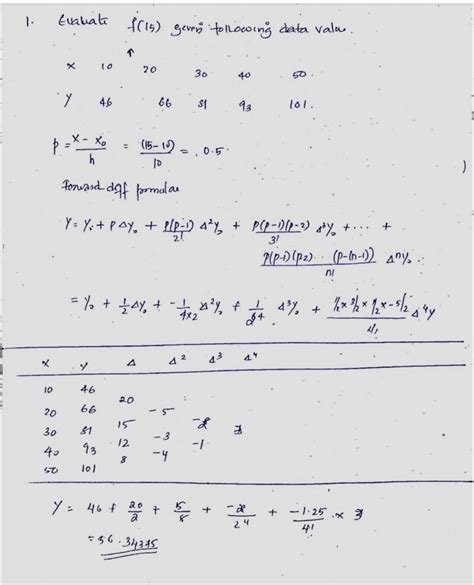 1. Evaluate f(15) given following data value.
x 10 20 30 40 50.
y 46 66 81 93 101.
p = x - x₀ / h = (15-10) / 10 = 0.5
Forward diff formulae
Y = y₀ + pΔy₀ + p(p-1)/2! Δ²y₀ + p(p-1)(p-2)/3! Δ³y₀ + ... +
p(p-1)(p2) .. (p-(n-1))/n! Δⁿy₀.
= y₀ + 1/2 Δy₀ + -1/4x2 Δ²y₀ + 1/24 Δ³y₀ + Δ⁴y
x y Δ Δ² Δ³ Δ⁴
10 46
20
20 66 -5
30 81 15
40 93 12 -3 -1
50 101 8 -4
Y = 46 + 20/2 + 5/8 + /24 + -1.25/4! x
= 56.34375